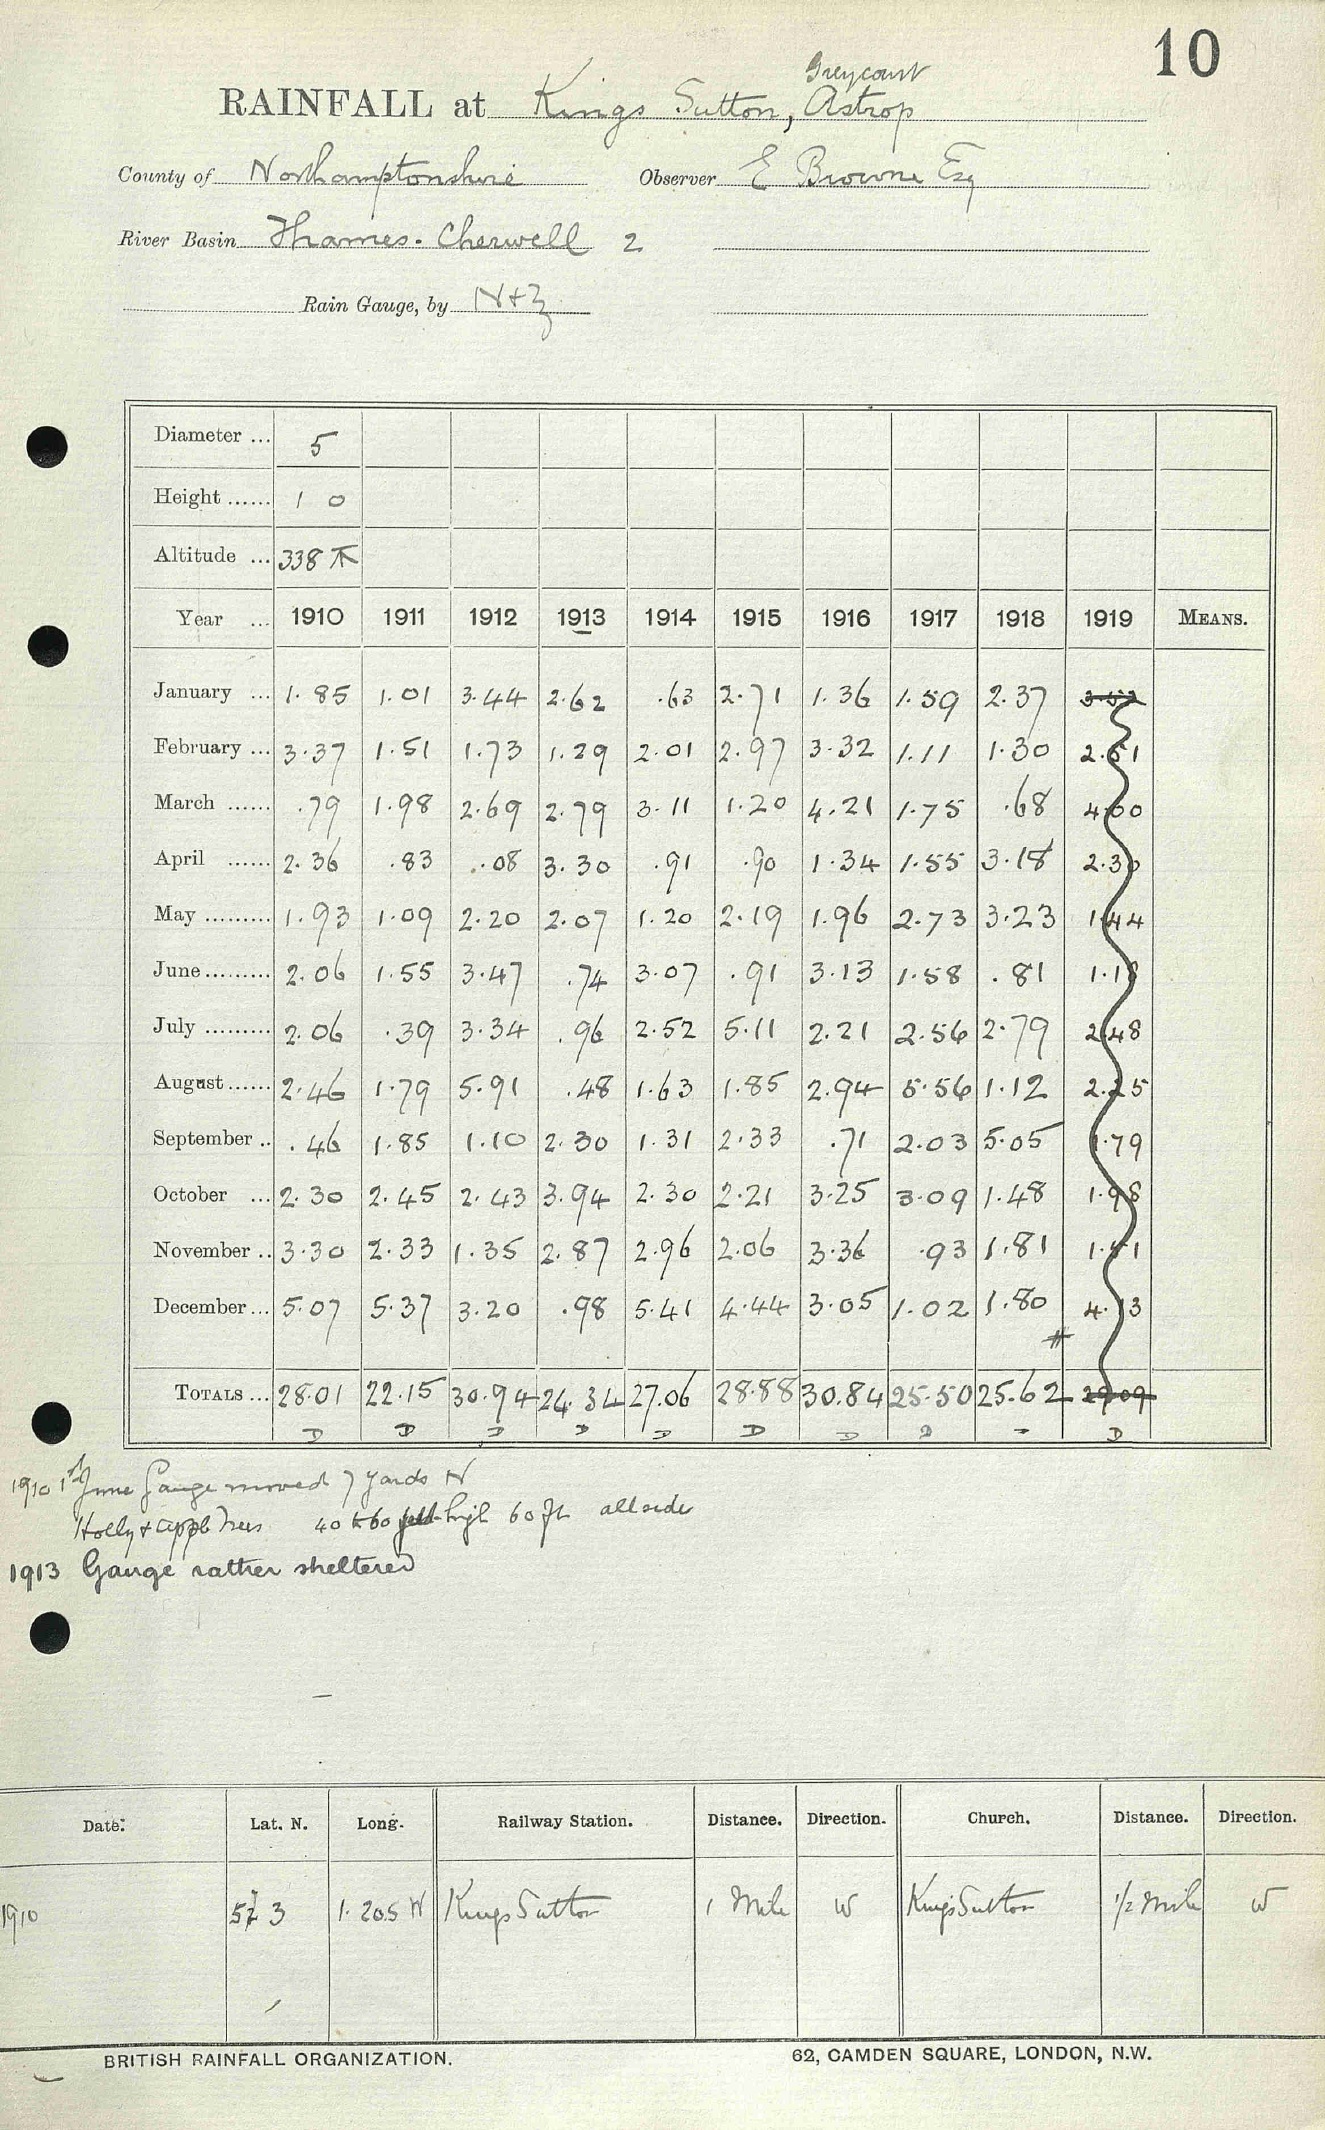 10
Greycourt
RAINFALL at Kings Sutton, Astrop
County of Northamptonshire Observer E Browne Esq
River Basin Thames. Cherwell 2
Rain Gauge, by N+Z
Diameter ... 5
Height ...... 1 0
Altitude ... 338
Year ... 1910 1911 1912 1913 1914 1915 1916 1917 1918 1919 MEANS.
January ... 1.85 1.01 3.44 2.62 .63 2.71 1.36 1.59 2.37 3.52
February ... 3.37 1.51 1.73 1.29 2.01 2.97 3.32 1.11 1.30 2.51
March ...... .79 1.98 2.69 2.79 3.11 1.20 4.21 1.75 .68 4.00
April ...... 2.36 .83 .08 3.30 .91 .90 1.34 1.55 3.18 2.30
May ......... 1.93 1.09 2.20 2.07 1.20 2.19 1.96 2.73 3.23 1.44
June ......... 2.06 1.55 3.47 .74 3.07 .91 3.13 1.58 .81 1.18
July ......... 2.06 .39 3.34 .96 2.52 5.11 2.21 2.56 2.79 2.48
August ...... 2.46 1.79 5.91 .48 1.63 1.85 2.94 5.56 1.12 2.25
September .. .46 1.85 1.10 2.30 1.31 2.33 .71 2.03 5.05 1.79
October ... 2.30 2.45 2.43 3.94 2.30 2.21 3.25 3.09 1.48 1.98
November .. 3.30 2.33 1.35 2.87 2.96 2.06 3.36 .93 1.81 1.51
December ... 5.07 5.37 3.20 .98 5.41 4.44 3.05 1.02 1.80 4.13
TOTALS ... 28.01 22.15 30.94 24.34 27.06 28.88 30.84 25.50 25.62 29.09
D D D D D D D D D
1910 1st June Gauge moved 7 yards N
Holly & apple trees 40 to 60 high 60 ft all side
1913 Gauge rather sheltered
Date. Lat. N. Long. Railway Station. Distance. Direction. Church. Distance. Direction.
1910 52 3 1. 20.5 W Kings Sutton 1 Mile W Kings Sutton 1/2 Mile W
BRITISH RAINFALL ORGANIZATION. 62, CAMDEN SQUARE, LONDON, N.W.